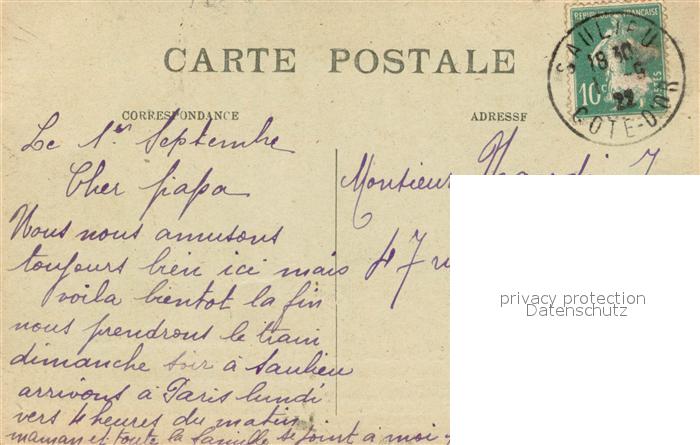 CARTE POSTALE
RÉPUBLIQUE FRANÇAISE
10c
POSTES
SAULIEU
18 30
22
COTE-D'OR
CORRESPONDANCE
ADRESSE
Le 1er Septembre
Cher papa
Nous nous amusons
toujours bien ici mais
voila bientot la fin
nous prendrons le train
dimanche soir à Saulieu
arrivons à Paris lundi
vers 4 heures du matin
maman et toute la famille se joint à moi
Monsieur
47
privacy protection
Datenschutz